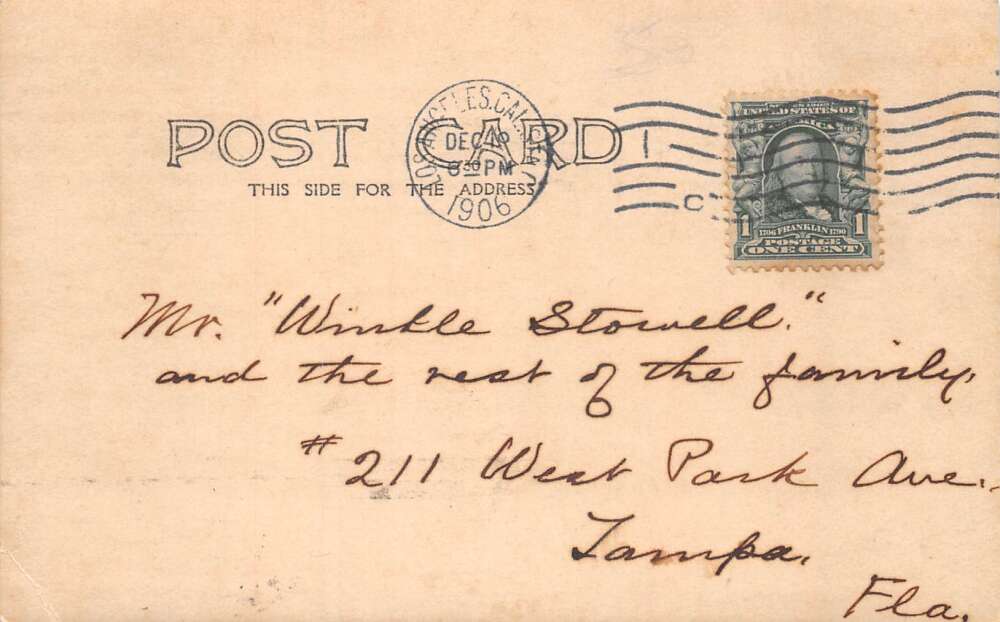 POST CARD
THIS SIDE FOR THE ADDRESS
LOS ANGELES, CAL.
DEC
6 30 PM
1906
C
UNITED STATES OF
AMERICA
1 1706 FRANKLIN 1790 1
POSTAGE
ONE CENT
Mr. "Winkle Stowell."
and the rest of the family.
# 211 West Park Ave.,
Tampa.
Fla.